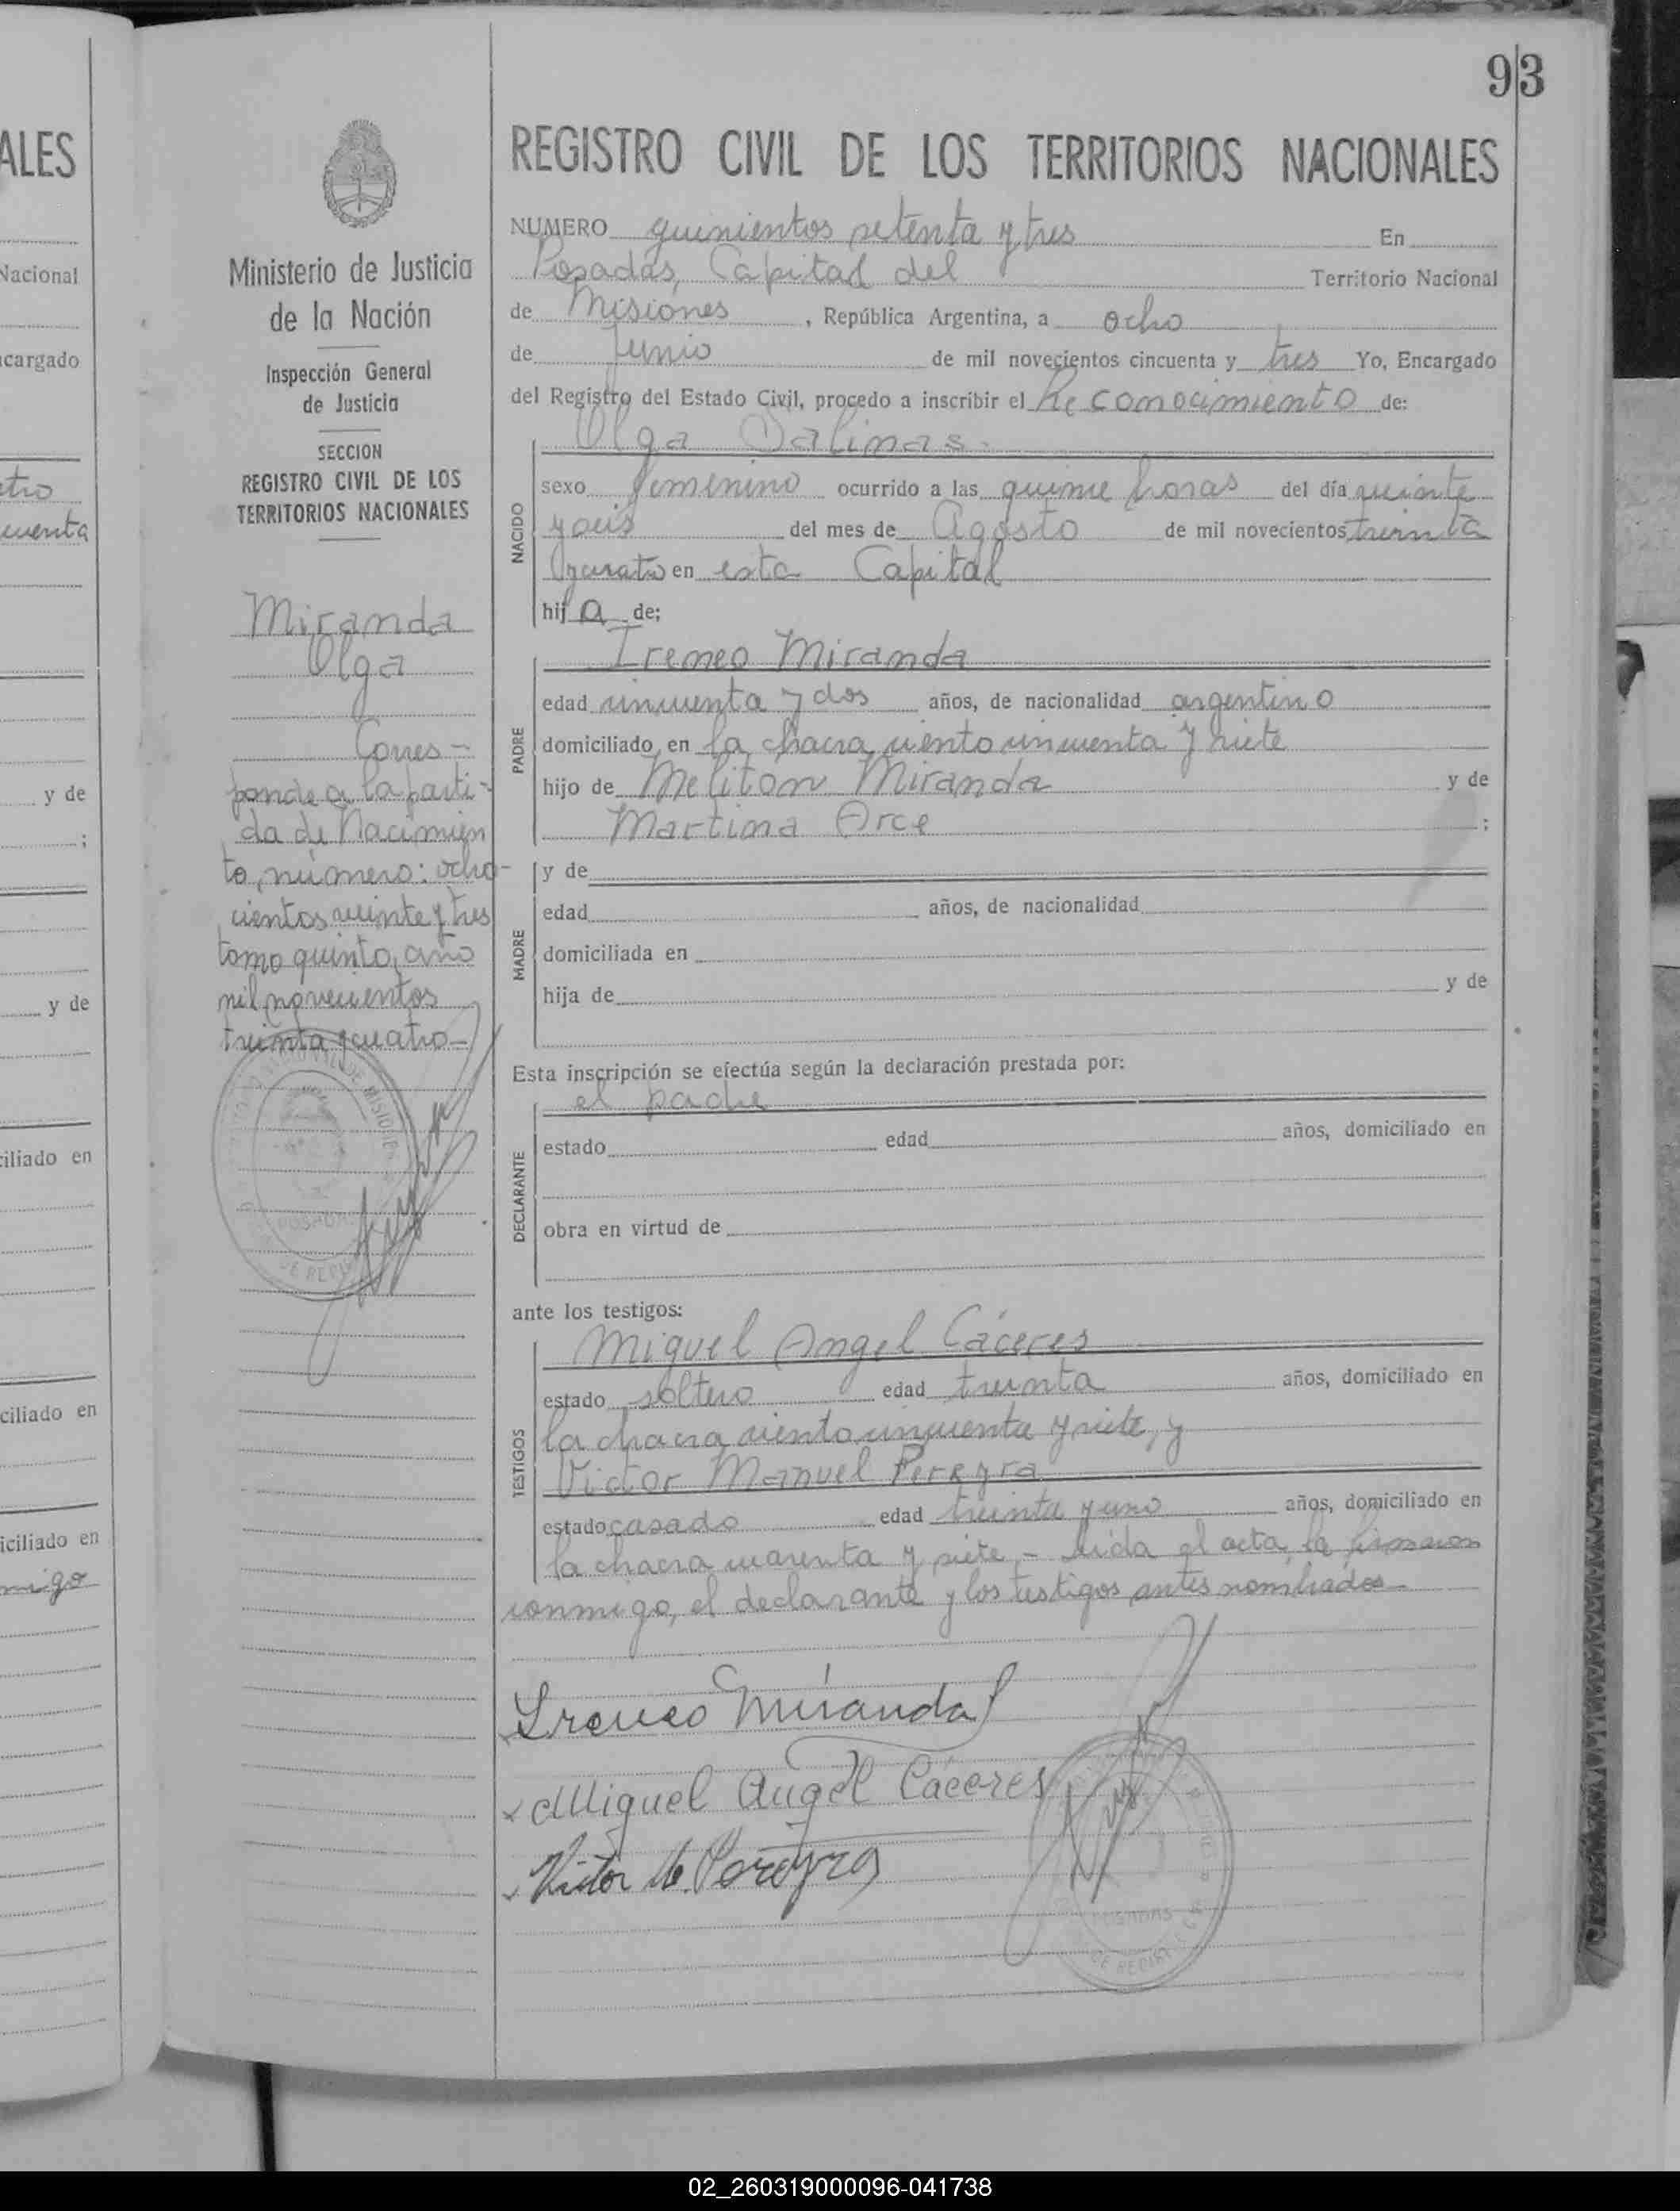 93
ALES
Nacional
ncargado
atro
cuenta
y de
;
y de
ciliado en
ciliado en
iciliado en
migo
Ministerio de Justicia
de la Nación
Inspección General
de Justicia
SECCION
REGISTRO CIVIL DE LOS
TERRITORIOS NACIONALES
Miranda
Olga
Corres-
ponde a la parti-
da de Nacimien
to, número: ocho-
cientos veinte y tres
tomo quinto, año
mil novecientos
treinta y cuatro-
REGISTRO CIVIL DE LOS TERRITORIOS NACIONALES
NUMERO quinientos setenta y tres En
Posadas, Capital del Territorio Nacional
de Misiones, República Argentina, a ocho
de Junio de mil novecientos cincuenta y tres Yo, Encargado
del Registro del Estado Civil, procedo a inscribir el Reconocimiento de:
Olga Salinas.
NACIDO
sexo femenino ocurrido a las quince horas del día veinte
y seis del mes de Agosto de mil novecientos treinta
y cuatro en esta Capital
hija de;
Ireneo Miranda
PADRE
edad cincuenta y dos años, de nacionalidad argentino
domiciliado en la chacra ciento cincuenta y siete
hijo de Meliton Miranda y de
Martina Arce ;
MADRE
y de
edad años, de nacionalidad
domiciliada en
hija de y de
Esta inscripción se efectúa según la declaración prestada por:
el padre
DECLARANTE
estado edad años, domiciliado en
obra en virtud de
ante los testigos:
Miguel Angel Cáceres
TESTIGOS
estado soltero edad treinta años, domiciliado en
la chacra ciento cincuenta y siete, y
Victor Manuel Pereyra
estado casado edad treinta y uno años, domiciliado en
la chacra cuarenta y siete.- Leida el acta, la firmaron
conmigo, el declarante y los testigos antes nombrados-
Ireneo Miranda
Miguel Angel Cáceres
Victor M. Pereyra
POSADAS
02_260319000096-041738